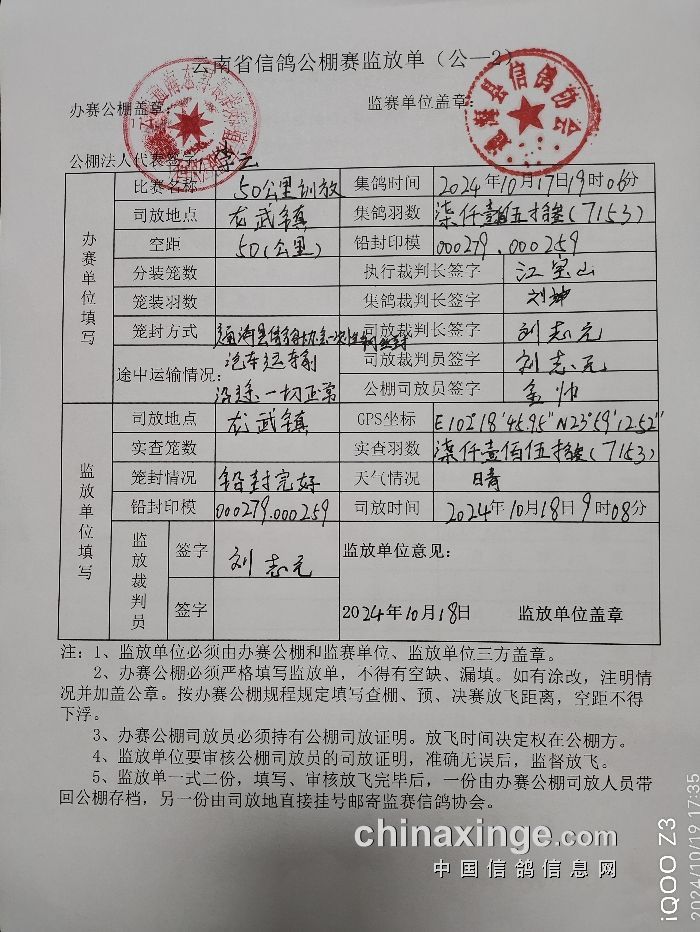 云南省信鸽公棚赛监放单（公—2）
办赛公棚盖章： 监赛单位盖章：
通海县信鸽协会
公棚法人代表签字
办赛单位填写
比赛名称 50公里训放 集鸽时间 2024年10月17日19时06分
司放地点 龙武镇 集鸽羽数 柒仟壹佰伍拾叁(7153)
空距 50(公里) 铅封印模 000279.000259
分装笼数 执行裁判长签字 江宝山
笼装羽数 集鸽裁判长签字 刘坤
笼封方式 通海县信鸽协会一次性 司放裁判长签字 刘志元
途中运输情况： 汽车运输 司放裁判员签字 刘志元
沿途一切正常 公棚司放员签字 金帅
监放单位填写
司放地点 龙武镇 GPS坐标 E102°18'45.95" N23°59'12.52"
实查笼数 实查羽数 柒仟壹佰伍拾叁(7153)
笼封情况 铅封完好 天气情况 晴
铅封印模 000279.000259 司放时间 2024年10月18日9时08分
监放裁判员 签字 刘志元 监放单位意见：
签字 2024年10月18日 监放单位盖章
注：1、监放单位必须由办赛公棚和监赛单位、监放单位三方盖章。
2、办赛公棚必须严格填写监放单，不得有空缺、漏填。如有涂改，注明情
况并加盖公章。按办赛公棚规程规定填写查棚、预、决赛放飞距离，空距不得
下浮。
3、办赛公棚司放员必须持有公棚司放证明。放飞时间决定权在公棚方。
4、监放单位要审核公棚司放员的司放证明，准确无误后，监督放飞。
5、监放单一式二份，填写、审核放飞完毕后，一份由办赛公棚司放人员带
回公棚存档，另一份由司放地直接挂号邮寄监赛信鸽协会。
chinaxinge.com
中国信鸽信息网
iQOO Z3
2024/10/19 17:35